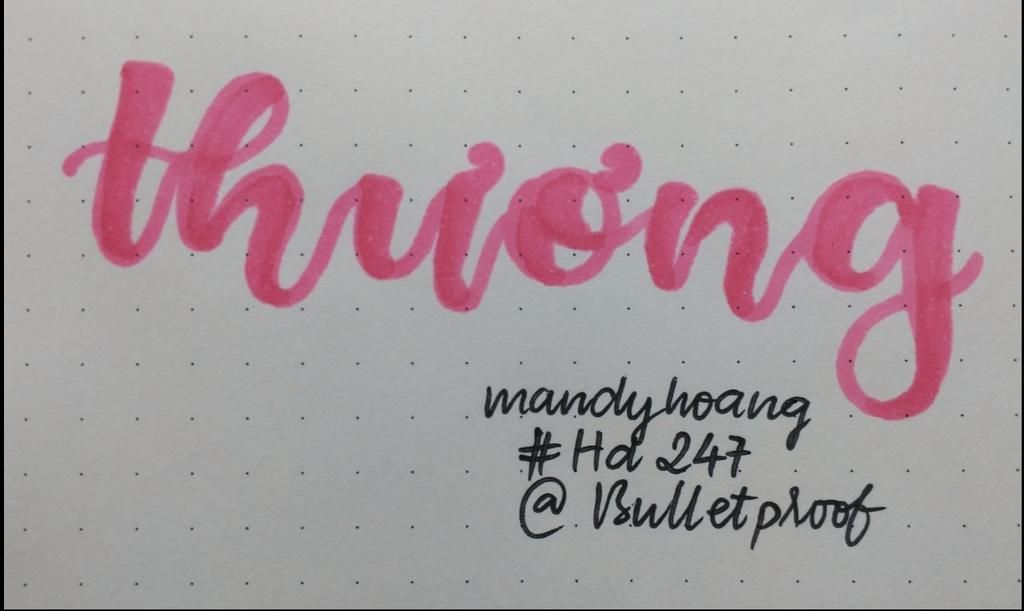 thương
mandyhoang
# Hd 247
@ Bulletproof